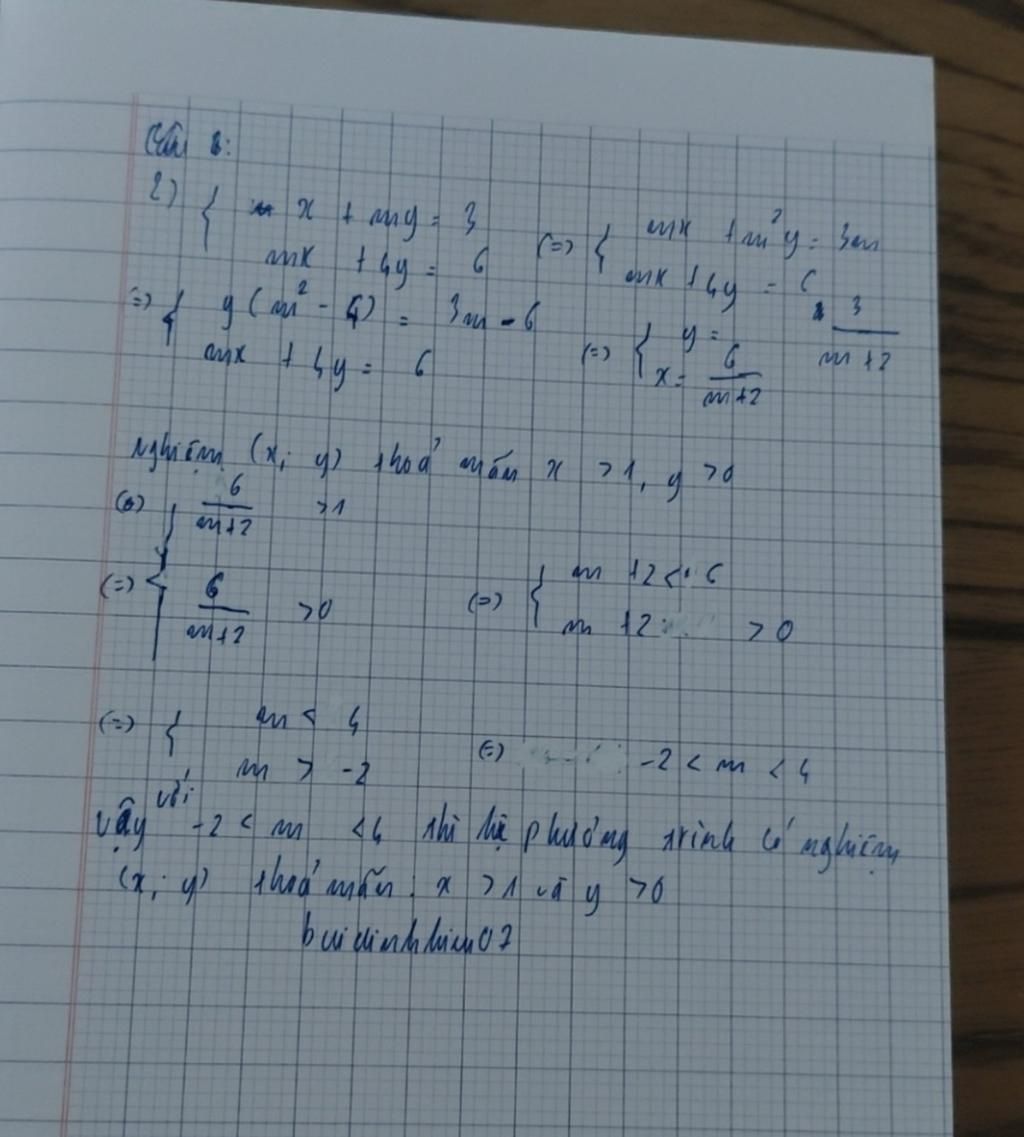 Câu 2:
2) { x + my = 3
mx + 4y = 6
(=) { mx + m²y = 3m
mx + 4y = 6
(=) { y(m² - 4) = 3m - 6
mx + 4y = 6
(=) { y = 3/(m+2)
x = 6/(m+2)
Nghiệm (x; y) thoả mãn x > 1, y > 0
(=) { 6/(m+2) > 1
6/(m+2) > 0
(=) { m + 2 < 6
m + 2 > 0
(=) { m < 4
m > -2
(=) -2 < m < 4
Vậy với -2 < m < 4 thì hệ phương trình có nghiệm
(x; y) thoả mãn: x > 1 và y > 0